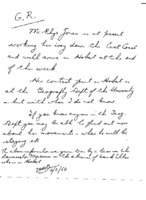 G.R.
Mr Rhys Jones is at present
working his way down the East Coast
and will arrive in Hobart at the end
of the week.
His contact point in Hobart is
at the Geography Dept of the University
but with whom I do not know.
If you know anyone in the Geog
Dept you may be able to find out more
about his movements, when he will be
staying etc
The above information was given by